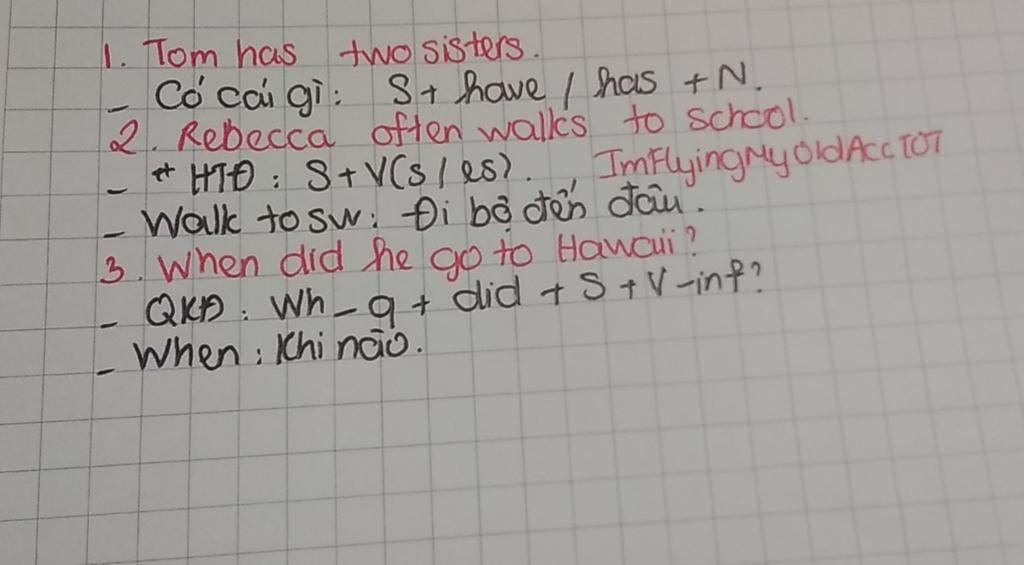 1. Tom has two sisters.
- Có cái gì: S+ have / has + N.
2. Rebecca often walks to school.
- * HTĐ: S+V(s/es). ImFlyingMyOldAccTOT
- Walk to sw: Đi bộ đến đâu.
3. When did he go to Hawaii?
- QKĐ: Wh-q + did + S + V-inf?
- When: Khi nào.